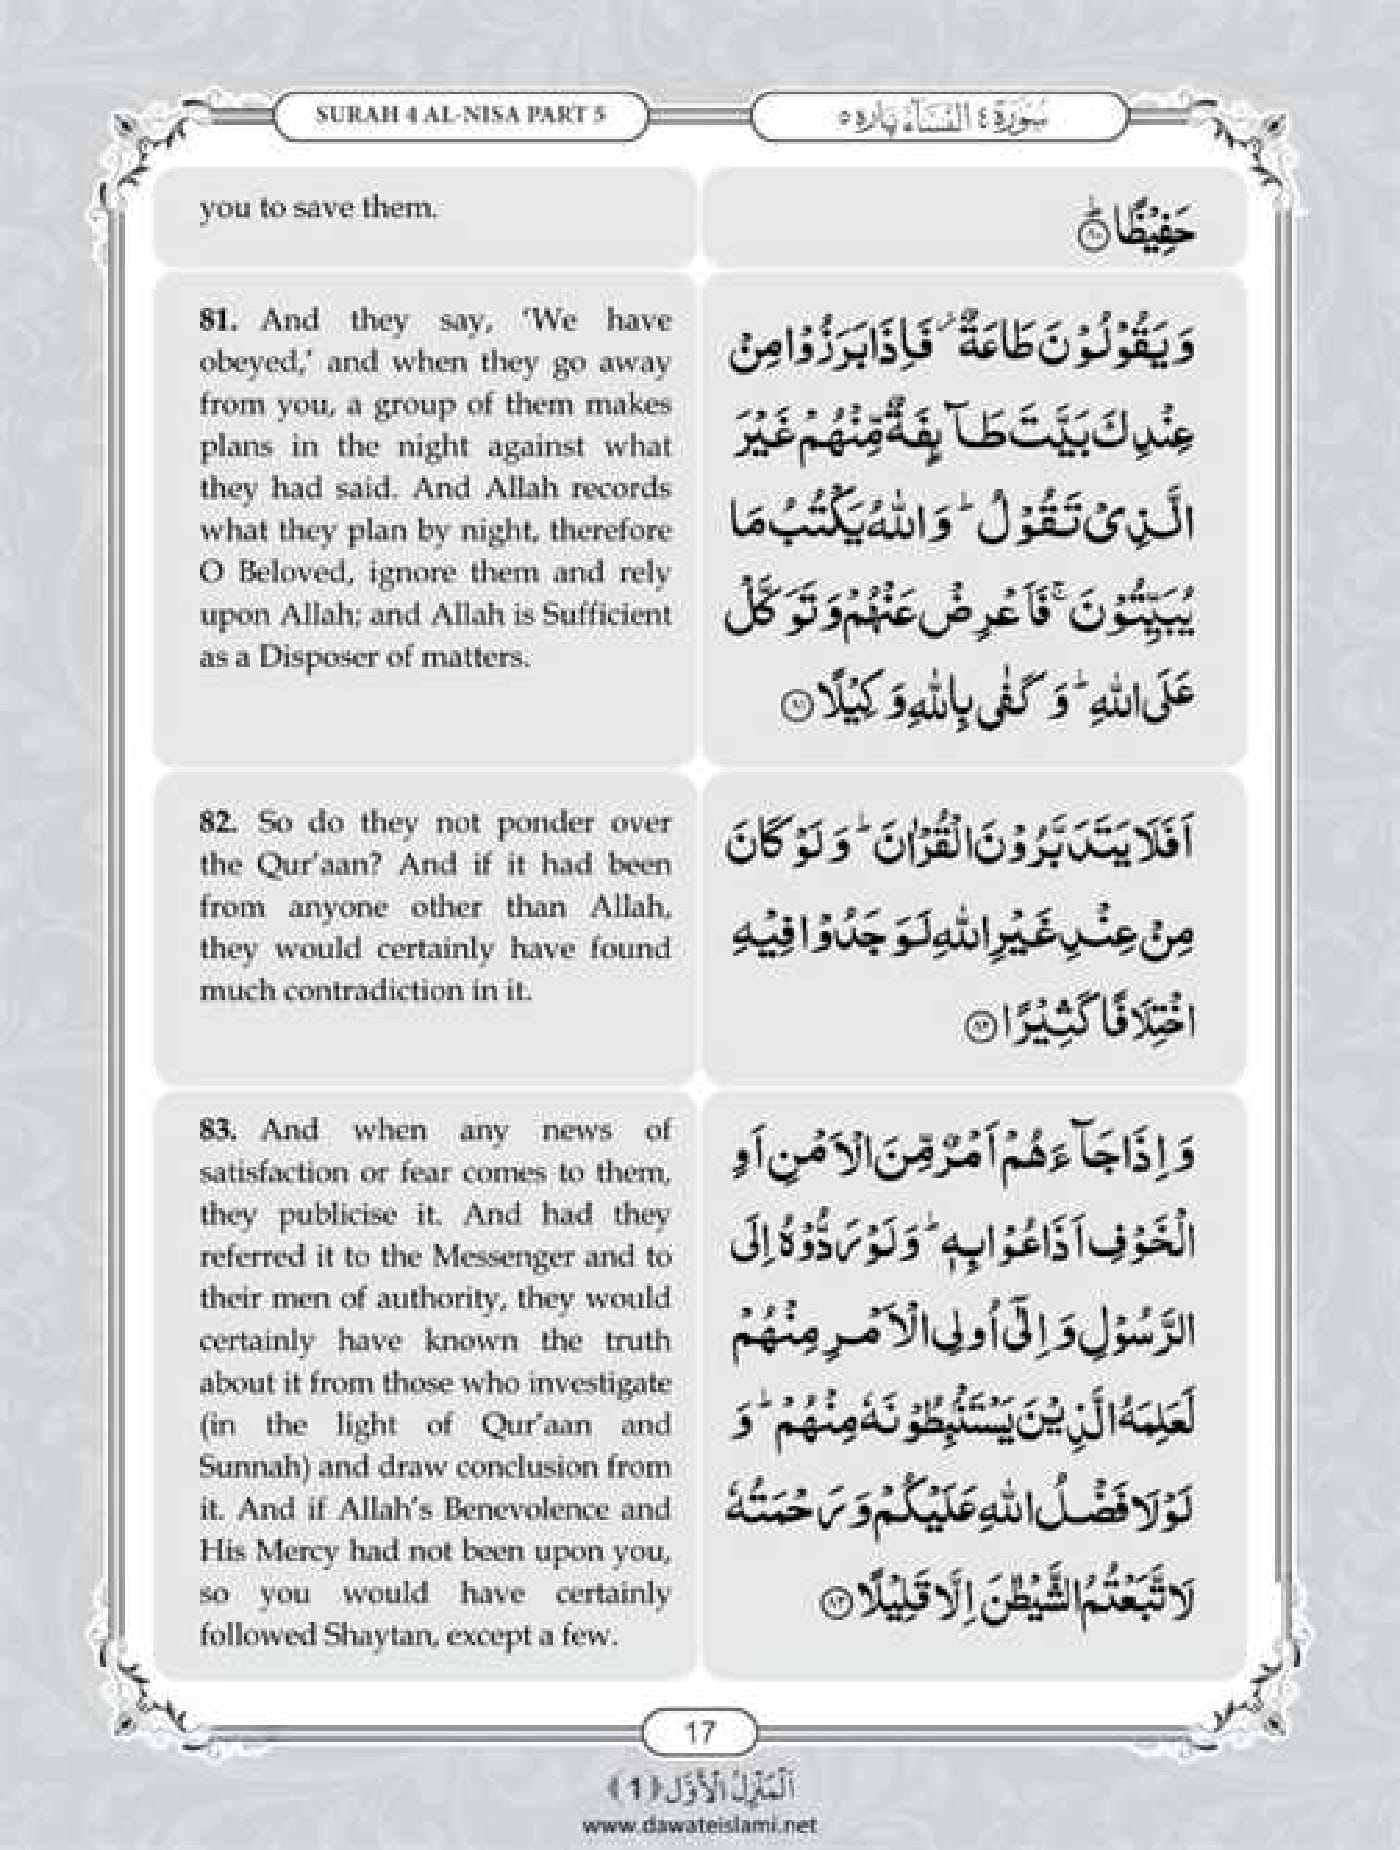 SURAH 4 AL-NISA PART 5
سُوْرَة ٤ النِّسَآء پاره ٥
you to save them.
حَفِيْظًا ؕ ﴿۸۰﴾
81. And they say, ‘We have
obeyed,’ and when they go away
from you, a group of them makes
plans in the night against what
they had said. And Allah records
what they plan by night, therefore
O Beloved, ignore them and rely
upon Allah; and Allah is Sufficient
as a Disposer of matters.
وَ یَقُوْلُوْنَ طَاعَةٌ ۫ فَاِذَا بَرَزُوْا مِنْ
عِنْدِكَ بَیَّتَ طَآىِٕفَةٌ مِّنْهُمْ غَیْرَ
الَّذِیْ تَقُوْلُ ؕ وَاللهُ یَكْتُبُ مَا
یُبَیِّتُوْنَ ۚ فَاَعْرِضْ عَنْهُمْ وَ تَوَكَّلْ
عَلَى اللهِ ؕ وَ كَفٰى بِاللهِ وَكِیْلًا ﴿۸۱﴾
82. So do they not ponder over
the Qur’aan? And if it had been
from anyone other than Allah,
they would certainly have found
much contradiction in it.
اَفَلَا یَتَدَبَّرُوْنَ الْقُرْاٰنَ ؕ وَ لَوْ كَانَ
مِنْ عِنْدِ غَیْرِ اللهِ لَوَجَدُوْا فِیْهِ
اخْتِلَافًا كَثِیْرًا ﴿۸۲﴾
83. And when any news of
satisfaction or fear comes to them,
they publicise it. And had they
referred it to the Messenger and to
their men of authority, they would
certainly have known the truth
about it from those who investigate
(in the light of Qur’aan and
Sunnah) and draw conclusion from
it. And if Allah’s Benevolence and
His Mercy had not been upon you,
so you would have certainly
followed Shaytan, except a few.
وَ اِذَا جَآءَهُمْ اَمْرٌ مِّنَ الْاَمْنِ اَوِ
الْخَوْفِ اَذَاعُوْا بِهٖ ؕ وَ لَوْ رَدُّوْهُ اِلَى
الرَّسُوْلِ وَ اِلٰۤى اُولِی الْاَمْرِ مِنْهُمْ
لَعَلِمَهُ الَّذِیْنَ یَسْتَنْۢبِطُوْنَهٗ مِنْهُمْ ؕ وَ
لَوْلَا فَضْلُ اللهِ عَلَیْكُمْ وَ رَحْمَتُهٗ
لَاتَّبَعْتُمُ الشَّیْطٰنَ اِلَّا قَلِیْلًا ﴿۸۳﴾
17
اَلْمَنْزِلُ الْاَوَّل ﴿1﴾
www.dawateislami.net